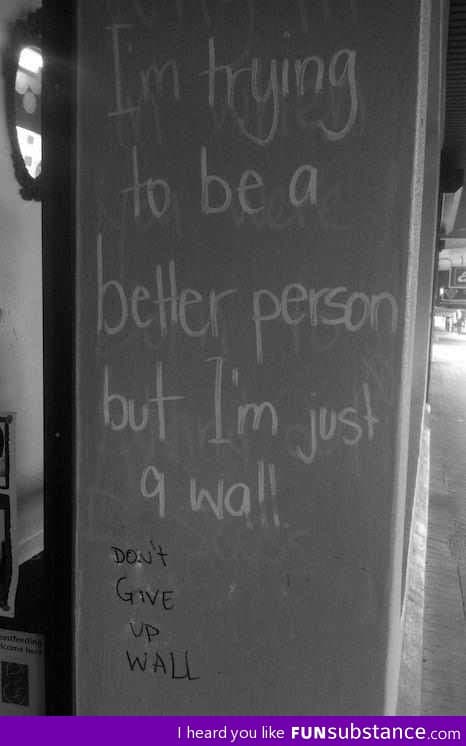 I'm trying
to be a
better person
but I'm just
a wall
DON'T
GIVE
UP
WALL
I heard you like FUNsubstance.com